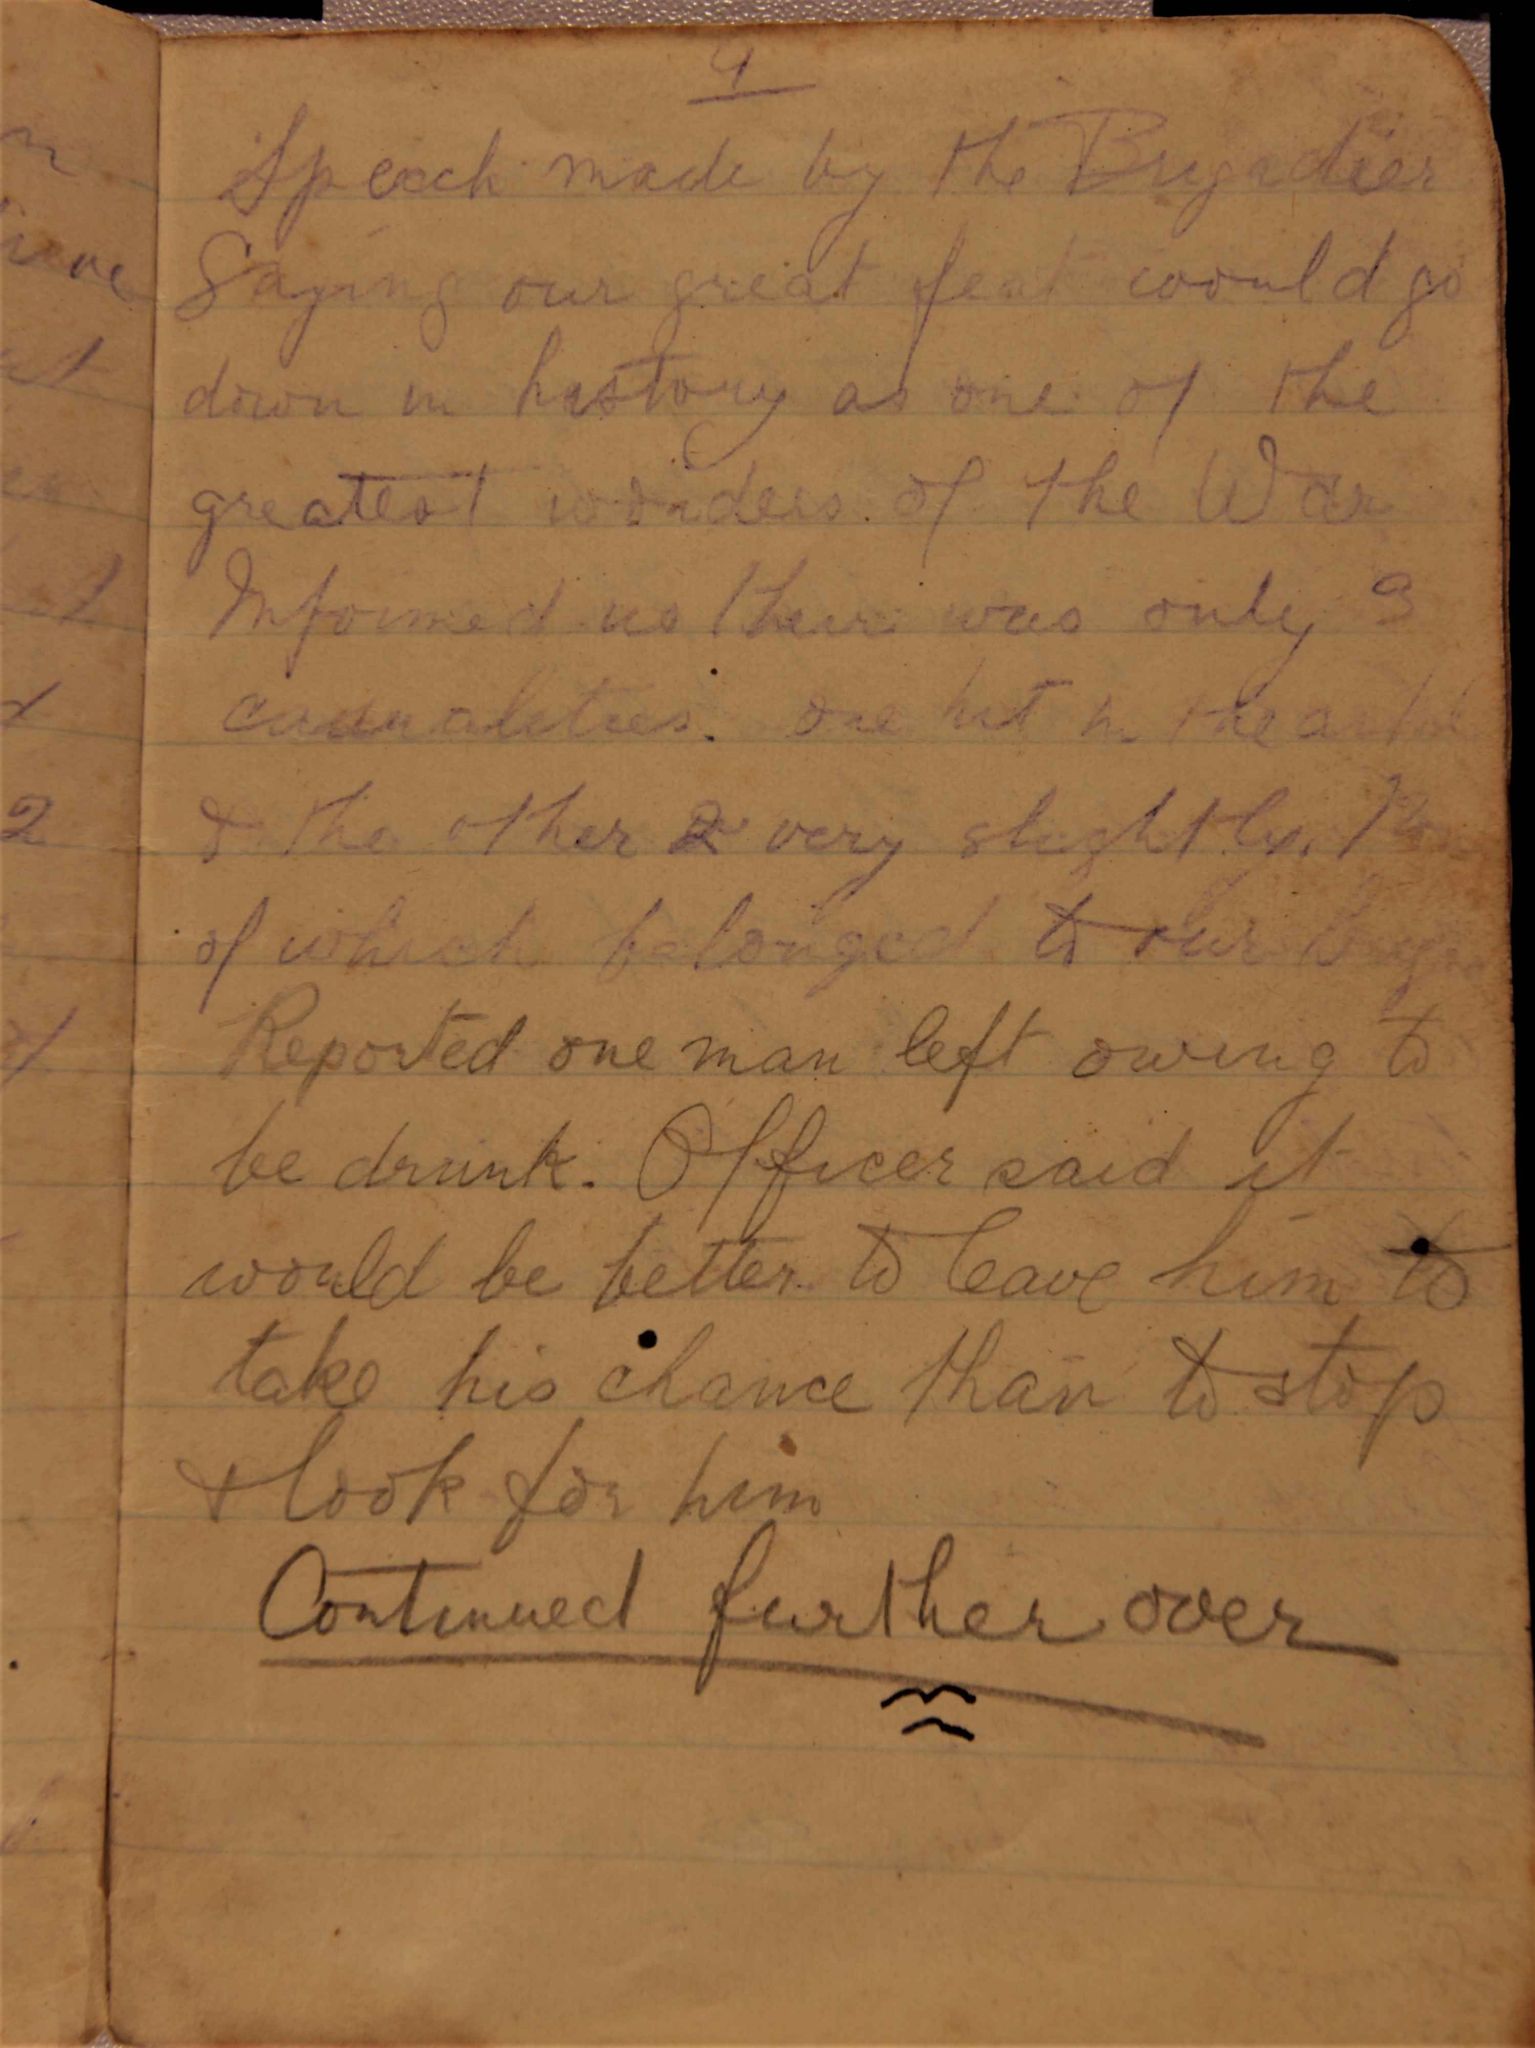 4
Speech made by the Brigadier
Saying our great feat would go
down in history as one of the
greatest wonders of the War
Informed us their was only 3
casualities. one hit in the
& the other 2 very slightly.
of which belonged to our
Reported one man left owing to
be drunk. Officer said it
would be better to leave him to
take his chance than to stop
& look for him
Continued further over